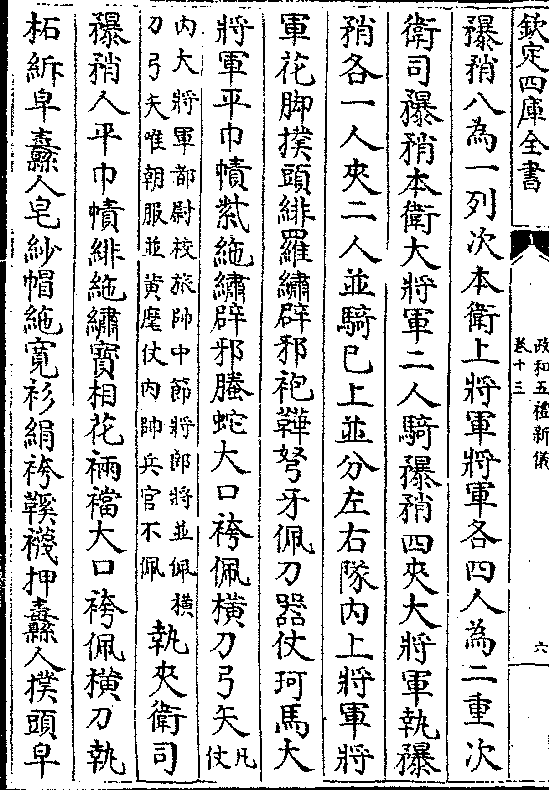 欽定四庫全書
政和五禮新儀
卷十三
六
𣝛矟八為一列次本衛上將軍將軍各四人為二重次
衛司𣝛矟本衛大將軍二人騎𣝛矟四夾大將軍執𣝛
矟各一人夾二人並騎已上並分左右隊内上將軍將
軍花脚撲頭緋羅繡辟邪袍鞾弩牙佩刀器仗珂馬大
將軍平巾幘紫絁繡辟邪螣蛇大口袴佩橫刀弓矢凡仗
内大將軍都尉校旅帥中節將郎將並佩橫
刀弓矢唯朝服並黄麾仗内帥兵官不佩
執夾衛司
𣝛矟人平巾幘緋絁繡寳相花裲襠大口袴佩橫刀執
柘𥿭皁纛人皂紗帽絁寛衫絹袴鞵襪押纛人撲頭皁